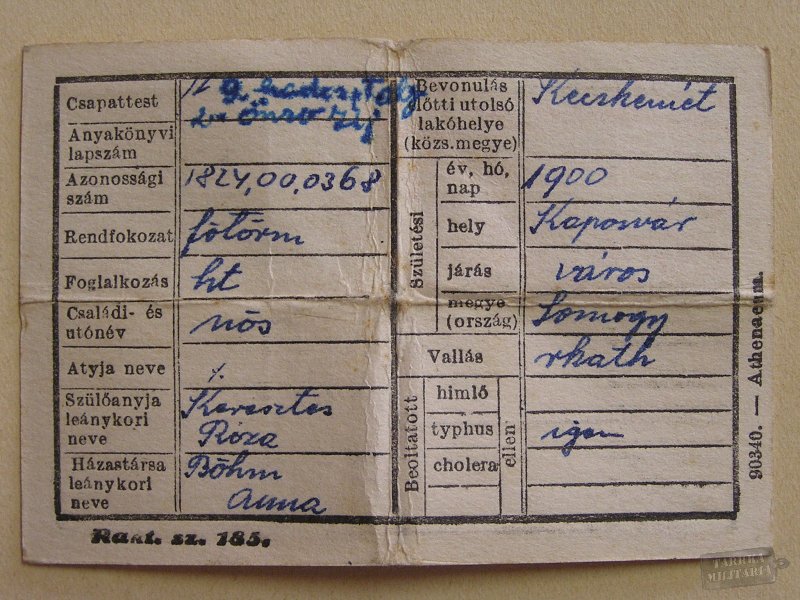 Csapattest
Anyakönyvi
lapszám
Azonossági
szám
1824,00,0368
Rendfokozat
főtörm
Foglalkozás
ht
Családi- és
utónév
nős
Atyja neve
Szülőanyja
leánykori
neve
Keresztes
Róza
Házastársa
leánykori
neve
Böhm
Anna
Bevonulás
előtti utolsó
lakóhelye
(közs.megye)
Kecskemét
Születési
év, hó,
nap
1900
hely
Kaposvár
járás
város
megye
(ország)
Somogy
Vallás
rkath
Beoltatott
himlő
typhus
cholera
ellen
igen
Rakt. sz. 185.
90340. — Athenaeum.
TARRKA
MILITARIA